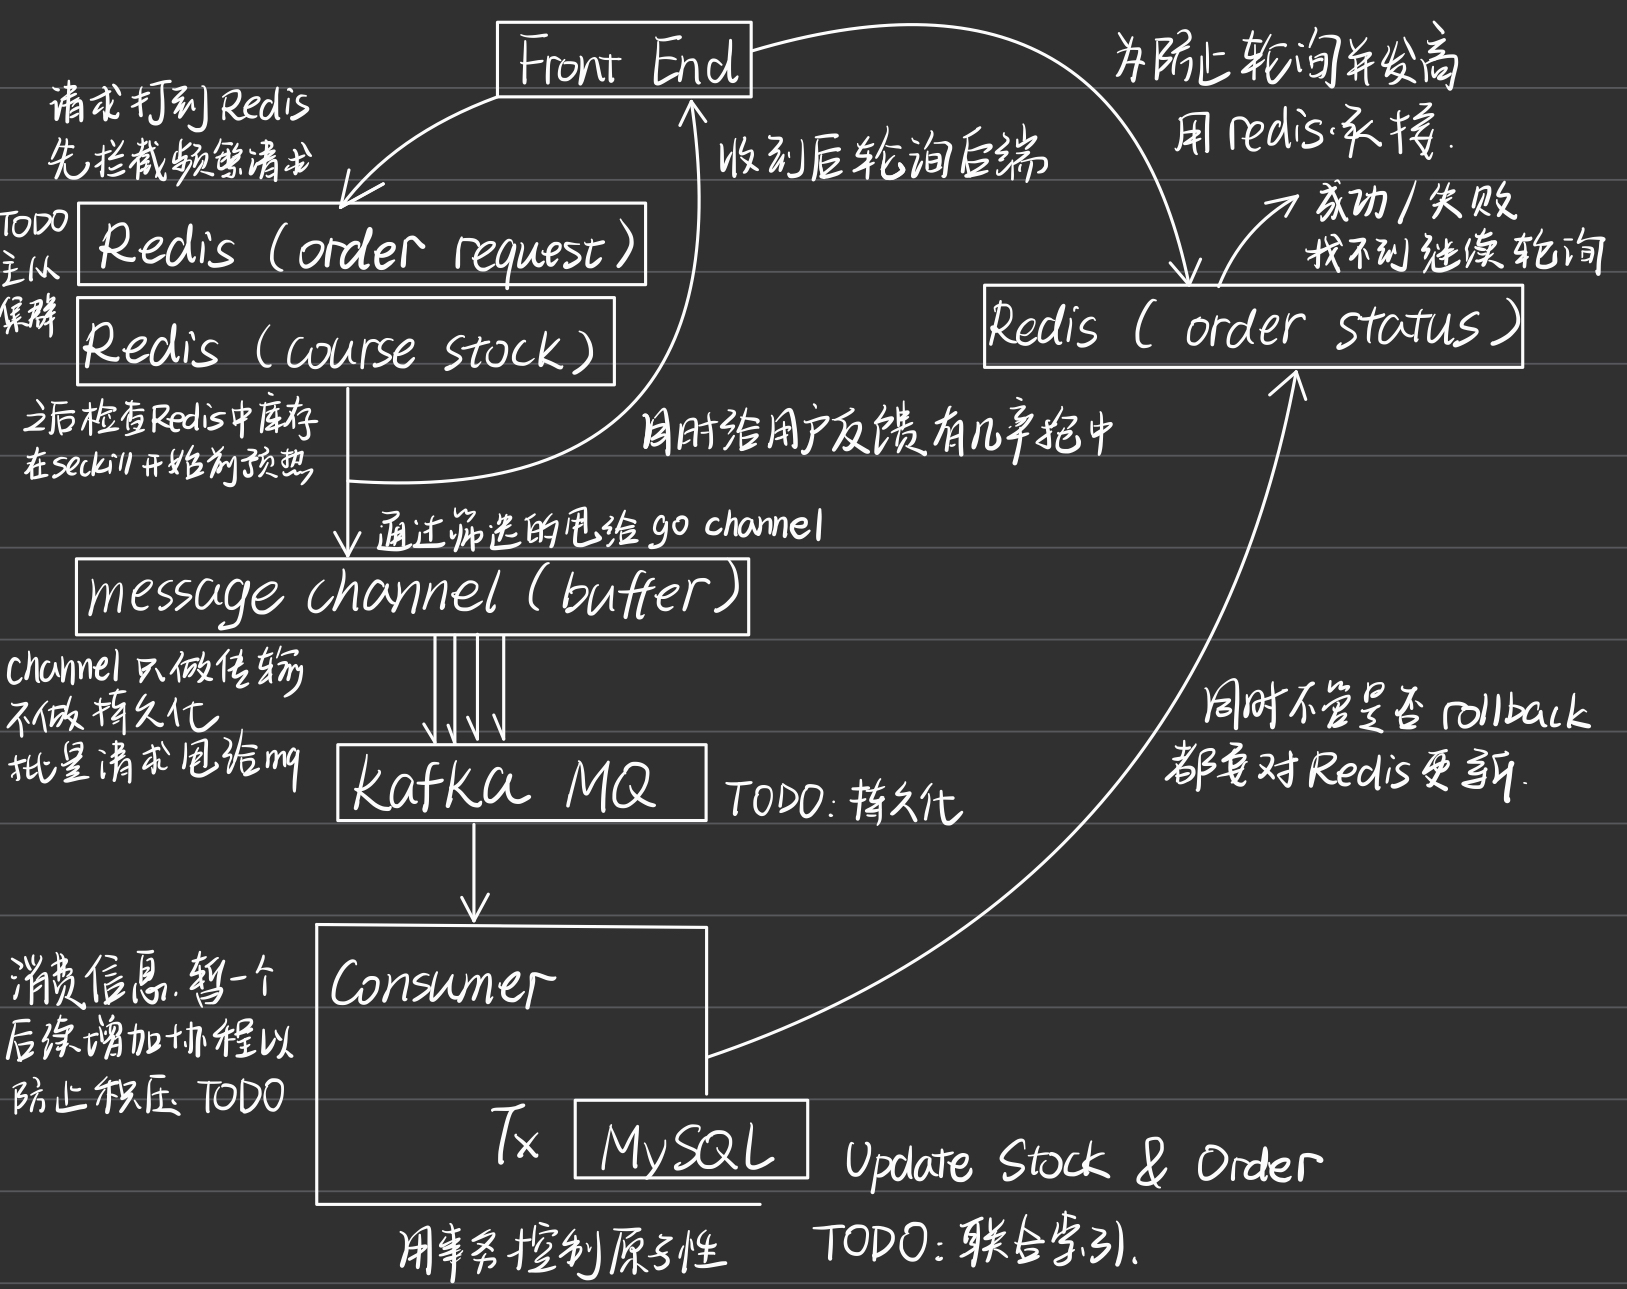 Front End
为防止轮询并发高
用redis承接.
请求打到Redis
先拦截频繁请求
收到后轮询后端
成功/失败
找不到继续轮询
TODO
主从
集群
Redis (order request)
Redis (course stock)
Redis ( order status)
之后检查Redis中库存
在seckill开始前预热
同时给用户反馈有几率抢中
通过筛选的甩给 go channel
message channel (buffer)
channel 只做传输
不做持久化
批量请求甩给mq
kafka MQ
TODO: 持久化
同时不管是否 rollback
都要对Redis更新.
Consumer
消费信息.暂一个
后续增加协程以
防止积压 TODO
Tx
MySQL
Update Stock & Order
用事务控制原子性
TODO: 联合索引.